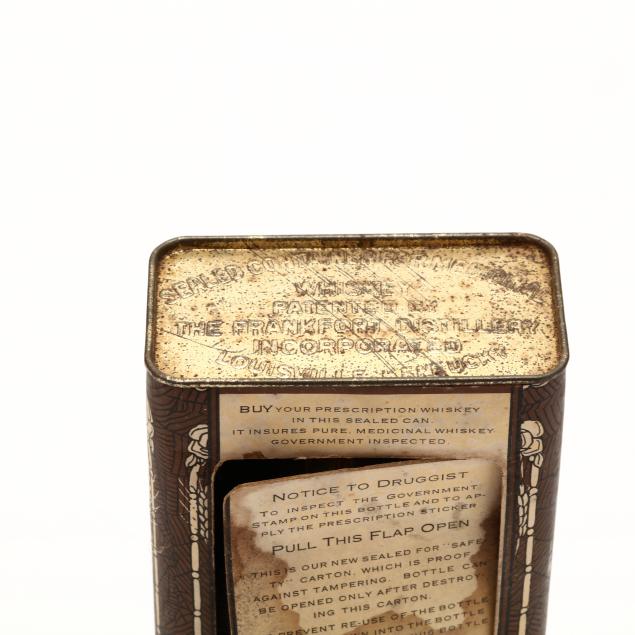 SEALED CONTAINER FOR MEDICINAL
WHISKEY
PATENTED BY
THE FRANKFORT DISTILLERY
INCORPORATED
LOUISVILLE KENTUCKY
BUY YOUR PRESCRIPTION WHISKEY
IN THIS SEALED CAN.
IT INSURES PURE, MEDICINAL WHISKEY
GOVERNMENT INSPECTED.
NOTICE TO DRUGGIST
TO INSPECT THE GOVERNMENT
STAMP ON THIS BOTTLE AND TO AP-
PLY THE PRESCRIPTION STICKER
PULL THIS FLAP OPEN
THIS IS OUR NEW SEALED FOR "SAFE
TY" CARTON, WHICH IS PROOF
AGAINST TAMPERING. BOTTLE CAN
BE OPENED ONLY AFTER DESTROY-
ING THIS CARTON.
PREVENT RE-USE OF THE BOTTLE
INTO THE BOTTLE